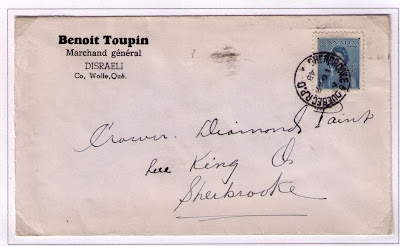 Benoit Toupin
Marchand général
DISRAELI
Co, Wolfe, Qué.
CANADA
SHERBROOKE & QUEBEC R.P.O.
Crown Diamond Paint
rue King O
Sherbrooke